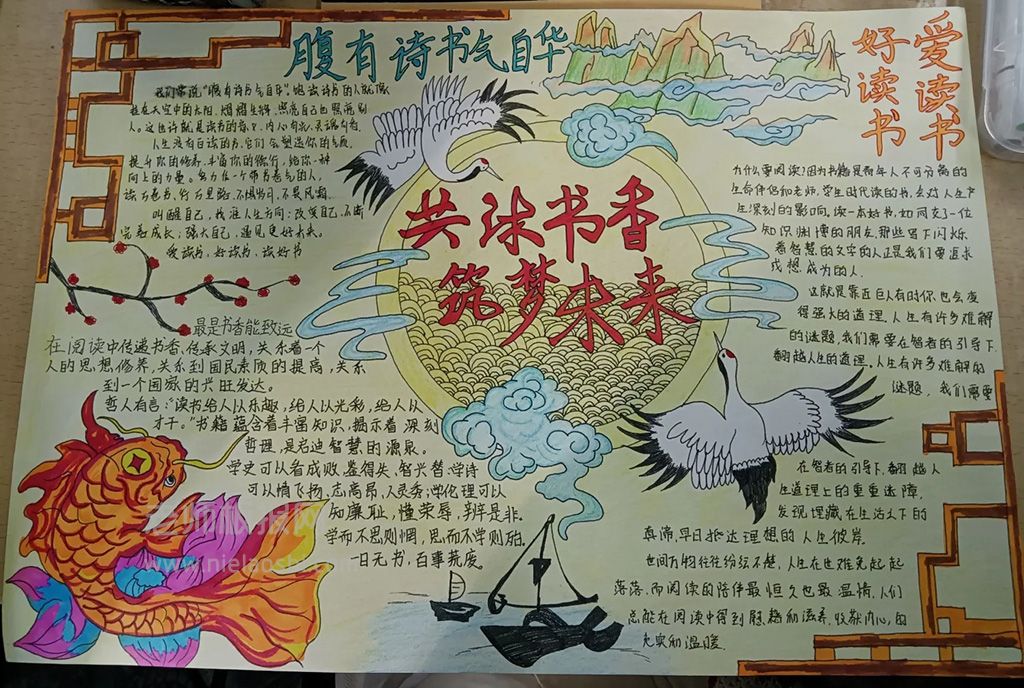 腹有诗书气自华
爱读书
好读书
共沐书香
筑梦未来
我们常说"腹有诗书气自华"，
挂在天空中的太阳，熠熠生辉，照亮自己也照亮别
向上的力量。努力做一个带书卷气的人，
叫醒自己，找准人生方向；改变自己，不断
完善成长；强大自己，遇见更好未来。
爱读书，好读书，读好书
为什么要阅读？因为书籍是青年人不可分离的
生命伴侣和老师，学生时代读的书，会对人生产
生深刻的影响，读一本好书，如同交了一位
知识渊博的朋友，那些写下闪烁
着智慧的文字的人正是我们要追求
找想成为的人。
这就是靠近巨人有时你也会变
得强大的道理，人生有许多难解
的谜题，我们需要在智者的引导下
翻越人生的道理，人生有许多难解的
谜题，我们需要
最是书香能致远
在阅读中传递书香，传承文明，关系着一个
人的思想修养，关系到国民素质的提高，关系
到一个国家的兴旺发达。
哲人有言："读书给人以乐趣，给人以光彩，给人以
才干。"书籍蕴含着丰富知识，揭示着深刻
哲理，是启迪智慧的源泉。
学史可以看成败，鉴得失，智兴替；学诗
可以情飞扬，志高昂，人灵秀；学伦理可以
知廉耻，懂荣辱，辨是非。
学而不思则惘，思而不学则殆。
一日无书，百事荒废。
在智者的引导下，翻越人
生道理上的重重迷障，
发现埋藏在生活之下的
真谛，早日抵达理想的人生彼岸。
世间万物往往纷纭不楚，人生在世难免起起
落落，而阅读的陪伴最恒久也最温情，人们
总能在阅读中得到慰藉和滋养，收获内心的
充实和温暖。
www.nielaoshi.com